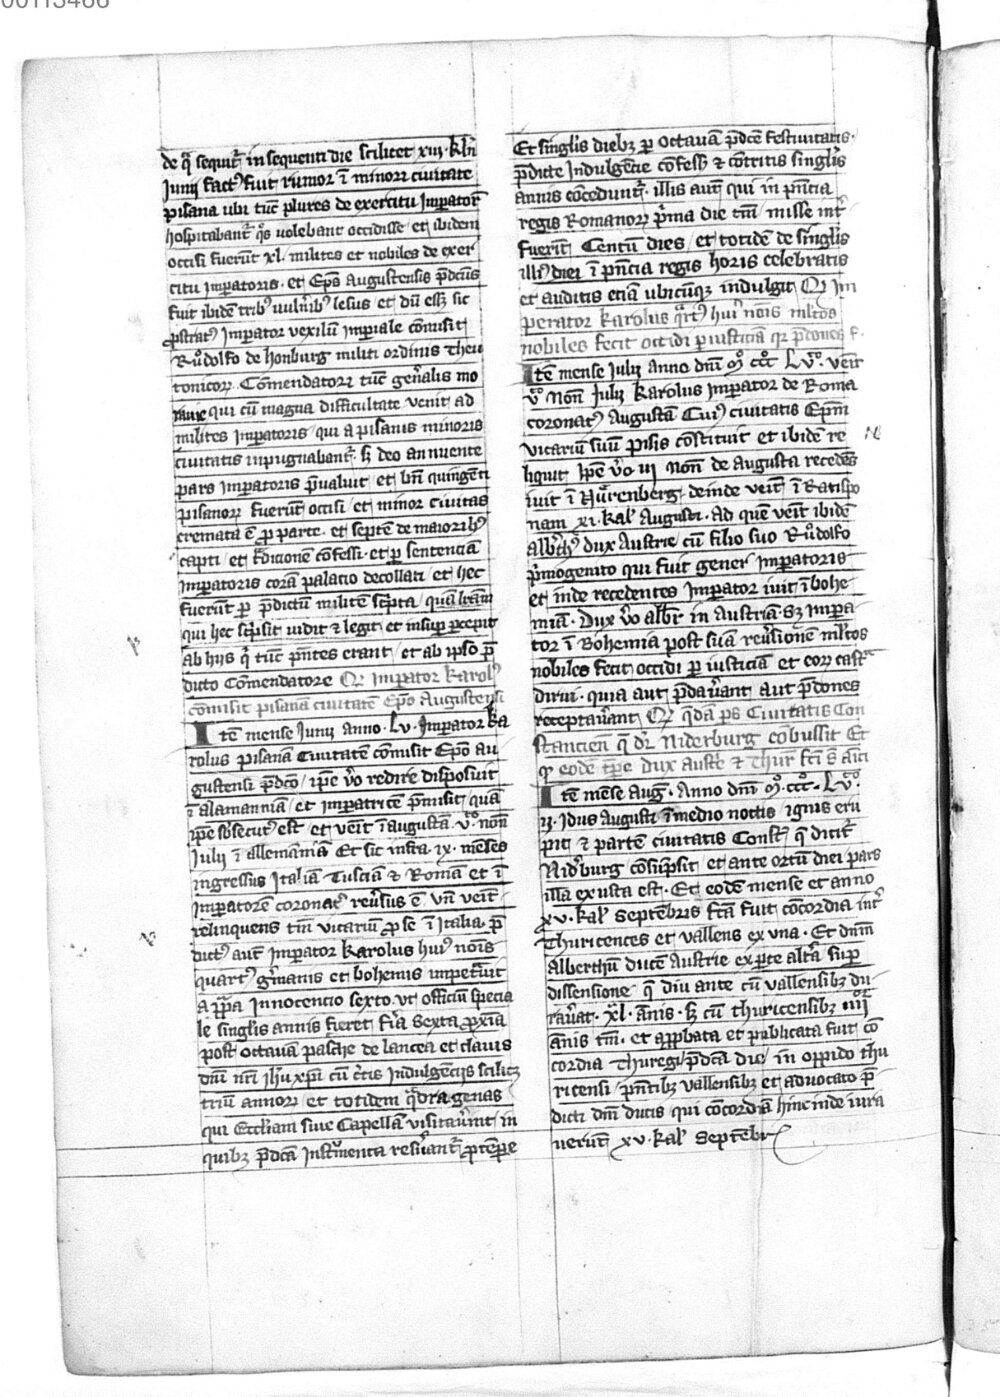 00113466
de qͥ sequit᷑ in sequenti die scilicet xiij · kl̄n
Junij fact⁹ fuit rumor ī minori ciuitate
pisana ubi tūc plures de exercitu Imperator̄
hospitabant᷑ qͦs volebant occidisse et ibidem
occisi fuerūt xl · milites et nobiles de exer
citu Imꝑatoris · et Ep̄s Augustensis p̄dictus
fuit ibidē tribꝰ vulnībꝰ lesus et dū ess; sic
ꝓstratꝰ Imꝑator vexilū Imꝑiale cōmisit
Růdolfo de honburg militi ordinis theu
tonicoꝝ Cōmendatori tūc gen̄alis mo
rauie qui cū magna difficultate venit ad
milites Imꝑatoris qui a pisanis minoris
ciuitatis inpugnabant᷑ · s; deo annuente
pars Imꝑatoris p̄ualuit et bn̄ quingēti
pisanoꝝ fuerūt occisi et minor ciuitas
cremata ē ꝓ parte · et septē de maioribꝰ
capti et tͣdicionē cōfessi · et ꝑ sentenciā
Imꝑatoris corā palacio decollati et hec
fuerūt ꝑ p̄dictū militē scͥpta quā lrām
qui hec scͥpsit vidit ⁊ legit et insuꝑ ꝑcepit
ab hijs qͥ tūc p̄ntes erant et ab ipso p̄
dicto Cōmendatore Qͥ Imperator karolꝰ
comisit pisanā ciuitatē Epo Augustensi
Itē mense Junij anno · lv · Imperator ka
rolus pisanā Ciuitatē cōmisit Epō au
gustensi p̄dc̄o ip̄e v̊o redire disposuit
ī alamanniā et Imꝑatricē p̄misit quā
ip̄e sb̄secutꝰ est et venīt ī augustā vͦ · nōn
Julij ī allemāniā Et sic infra · ix · mēses
ingressus Italiā Tusciā ⁊ Romā et ī
Imꝑatorē coronatꝰ reu̓sus ē vn̄ venīt
relinquens tn̄ vicariū ꝓ se ī Italia · p̄
dictꝰ aut̄ Imꝑator karolus huiꝰ nōis
quartꝰ g̓manis et bohemis impetͣuit
a pͣpa Innocencio sexto vt officiū specia
le singlis annis fieret fīa sexta ꝓxīa
post octauā pasche de lancea et clauis
dn̄i nr̄i ih̄u xp̄i cū c̄tis Indulgēcijs scilicꝫ
triū annoꝝ et totidem qͣdragenas
qui Eccliam siue Capellā visitau̓int in
quibꝫ p̄dc̄a Instru̓menta resu̓uant᷑ ꝓtēꝑe
Et singlis diebꝫ ꝑ octauā p̄dc̄e festiuitatis ·
p̄dicte Indulgēcie cōfess̄ ⁊ cōtritis singlis
annis cōcedunt᷑ · illis aut̄ qui in p̄ncia
regis Romanoꝝ pͥma die tm̄ misse int̓
fuerīt Centū dies et totidē de singlis
illiꝰ diei ī p̄ncia regis horis celebratis
et auditis eciā ubicūqꝫ indulgit Qͥ Im
perator karolus qͣrtꝰ huiꝰ nōis mltos
nobiles fecit occidi ꝑ iusticiā qꝛ p̄dones f ·
Itē mense Julij Anno dn̄i mͦ cccͦ lvͦ · venīt
vͦ Non̄ Julij karolus Imꝑator de Roma
coronatꝰ Augustā Cuiꝰ ciuitatis Ep̄m
vicariū suū pisis cōstituit et ibidē re
liquit Ip̄e v̊o iij Non̄ de Augusta recedēs
iuit ī Nůrenberg · deinde venīt ī Ratispo
nam xi · kal̄ Augusti · Ad quē venīt ibidē
albr̄tꝰ dux Austrie cū filio suo Růdolfo
pͥmogenito qui fuit gener Imꝑatoris
et inde recedentes Imperator iuit ī bohe
miā · Dux v̊o albr̄ in austriā · Sꝫ Imꝑa
tor ī Bohemia post suā reu̓sionem mltos
nobiles fecit occidi ꝑ iusticiā et eoꝝ castͣ
dirui · quia aut p̄dau̓ant aut p̄dones
receptau̓ant Qͥ qͦdā ps Ciuitatis Con
stancien̄ q̄ dr̄ Niderburg cōbussit Et
qͥ eodē tꝑe dux austͥe ⁊ thur̄ fc̄i s̄ aīci
Itē mēse Aug̓ · Anno dn̄i mͦ · cccͦ · lvͦ ·
ij · Idus Augusti ī medio noctis ignis eru
pit ⁊ partē ciuitatis Const̄ q̄ dicit᷑
Nid̓burg cōsūpsit et ante ortū diei pars
illa exusta est · Et eodē mense et anno
xv · kal̄ septēbris fc̄a fuit cōcordia int̓
thuricences et vallens̄ ex vna · Et dn̄m
Alberthū ducē Austrie ex ꝑte altͣa suꝑ
dissensione q̄ diu ante cū vallensibꝫ du
rau̓at · xl · ānis · sꝫ cū thuricensibꝫ iiijͦʳ
ānis tm̄ · et aꝓbata et publicata fuit cō
cordia thuregi p̄dc̄a die in oppido thu
ricensi p̄ntibꝫ vallensibꝫ et aduocato p̄
dicti dn̄i ducis qui cōcordiā hincinde iura
uerūt xv · kal̄ septēbr̄